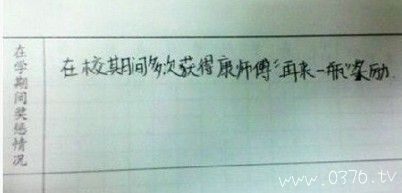 在学期间奖惩情况
在校期间多次获得康师傅“再来一瓶”奖励.
www.0376.tv